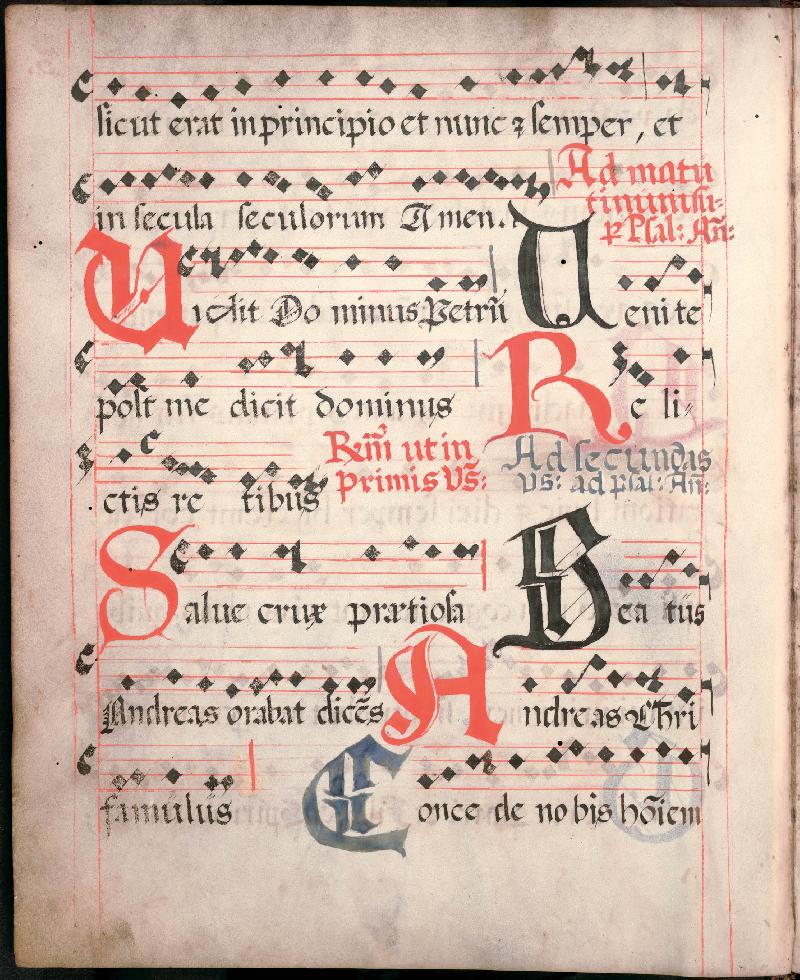 sicut erat in principio et nunc ⁊ semper, et
in secula seculorum Amen. Ad matu
tinum su-
p Psal: Añ:
Uidit Do minus Petrũ Uenite
post me dicit dominus Re li-
ctis re tibus Rem̃ ut in primis Vs̃: Ad secundas
Vs: ad psal: Añ:
Salue crux prætiosa Bea tus
Andreas orabat dicẽs Andreas Chri
famulus Conce de no bis hõiem